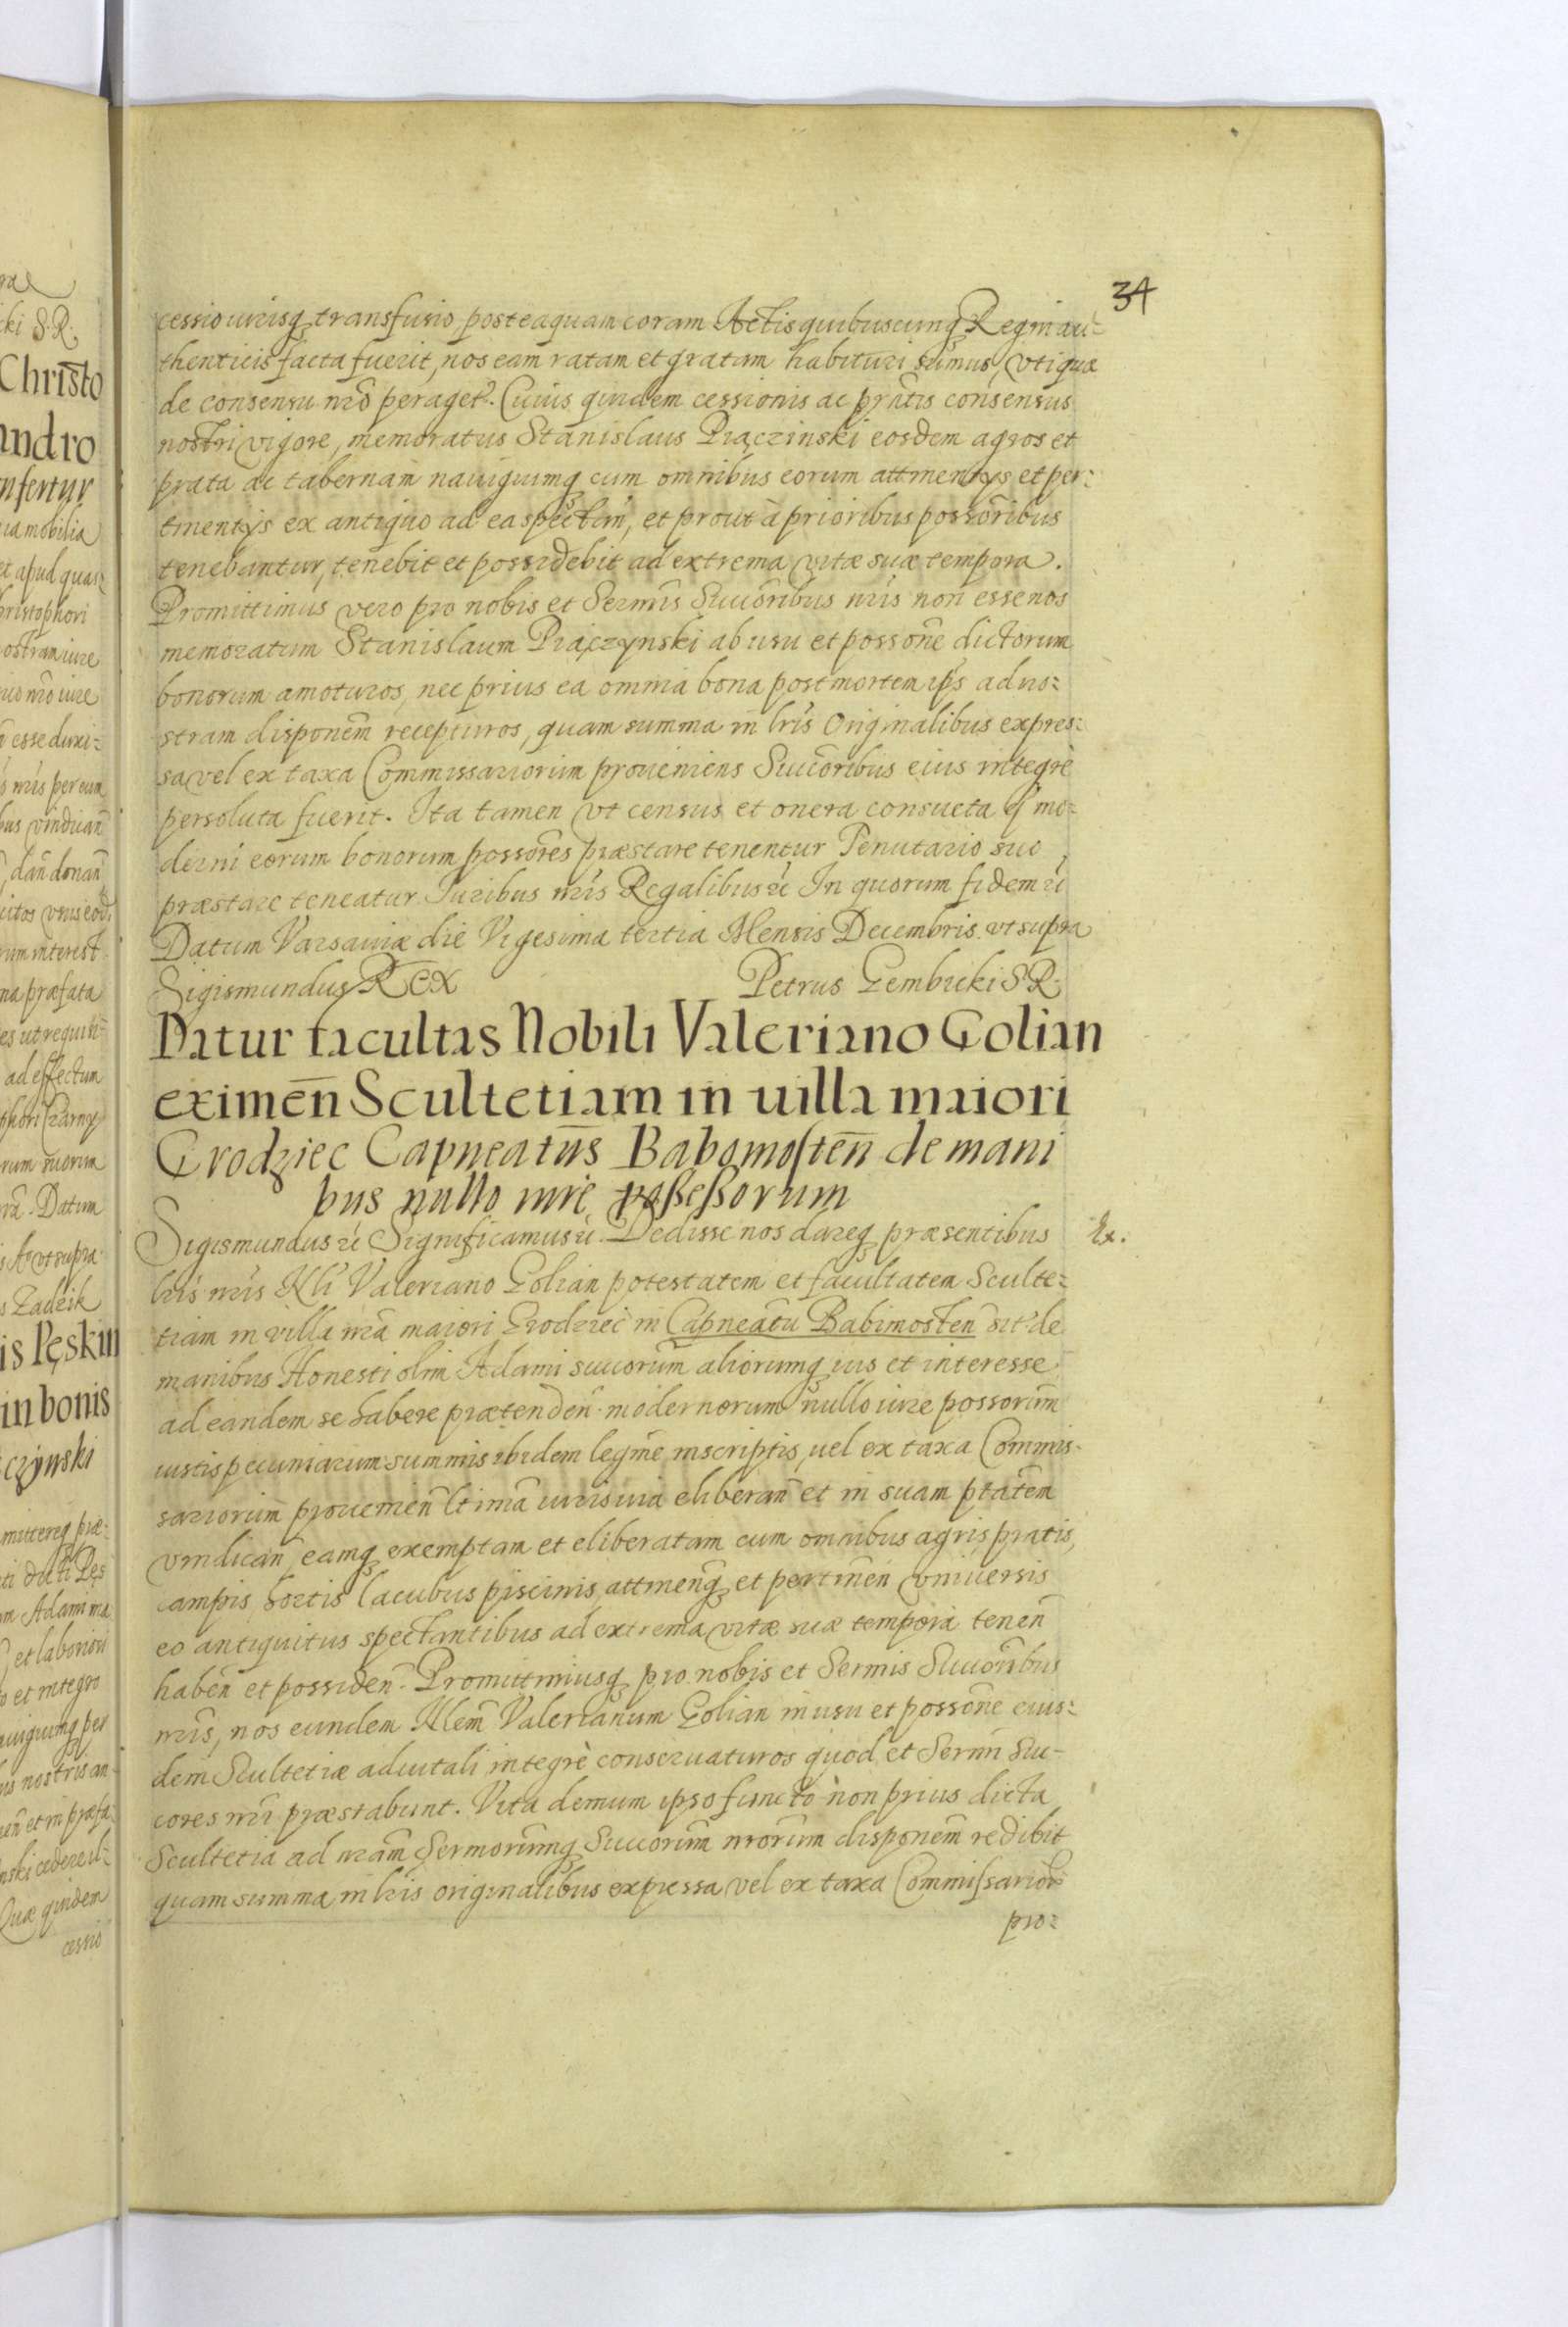 34
cessio iurisq transfusio, posteaquam coram Actis quibuscunq Regni au=
thenticis facta fuerit, nos eam ratam et gratam habituri sumus, vti quæ
de consensu nrō peraget.r Cuius quidem cessionis ac prn̄tis consensus
nostri vigore, memoratus Stanislaus Prączinski eosdem agros et
prata ac tabernam nauiguimq cum omnibus eorum attinentys et per=
tinentys ex antiquo ad ea spectan̄, et prout à prioribus possōribus
tenebantur, tenebit et possidebit ad extrema vitæ suæ tempora.
Promittimus vero pro nobis et Sermīs Succōribus nrīs non esse nos
memoratum Stanislaum Prączynski ab usu et possōne dictorum
bonorum amoturos, nec prius ea omnia bona post mortem ips ad no=
stram disponēm recepturos, quam summa in lrīs Originalibus expres=
sa vel ex taxa Commissariorum proueniens Succōribus eius integrè
persoluta fuerit. Ita tamen vt census et onera consueta q mo=
derni eorum bonorum possōres præstare tenentur Tenutario suo
præstare teneatur. Iuribus nrīs Regalibus rc̄ In quorum fidem rc̄
Datum Varsauiæ die Vigesima tertia Mensis Decembris vt supra
Sigismundus Rex Petrus Gembicki S.R.
Datur facultas Nobili Valeriano Golian
eximen̄ Scultetiam in uilla maiori
Grodziec Capneatūs Babomosten̄ de mani
bus nullo iure poßeßorum
Ex.
Sigismundus rc̄ Significamus rc̄. Dedisse nos dareq præsentibus
lrīs nrīs Nli Valeriano Golian potestatem et facultatem Sculte=
tiam in villa nrā maiori Grodziec in Capneātu Babimosten̄ sit.r de
manibus Honesti olim Adami succorum̄ aliorumq ius et interesse
ad eandem se habere prætenden̄. modernorum nullo iure possorum̄
iustis pecuniarum summis ibidem legmē inscriptis, uel ex taxa Commis-
sariorum prouenien̄ ltimā iuris uia eliberan̄ et in suam ptātem
vindican̄, eamq exemptam et eliberatam cum omnibus agris pratis,
campis hortis lacubus piscinis, attinenq et pertinen̄ vniuersis
eo antiquitus spectantibus ad extrema vitæ suæ tempora tenen̄
haben̄ et possiden̄. Promittimusq pro nobis et Sermis Succōribus
nrīs, nos eundem Nlem̄ Valerianum Golian in usu et possōne eius=
dem Scultetiæ aduitali integrè conseruaturos quod et Sermī Suc-
cores nrī præstabunt. Vita demum ipso functo non prius dicta
Scultetia ad nram̄ Sermorumq Succorum̄ nrorum disponem̄ redibit
quam summa in lrīs originalibus expressa vel ex taxa Commissarior
pro=